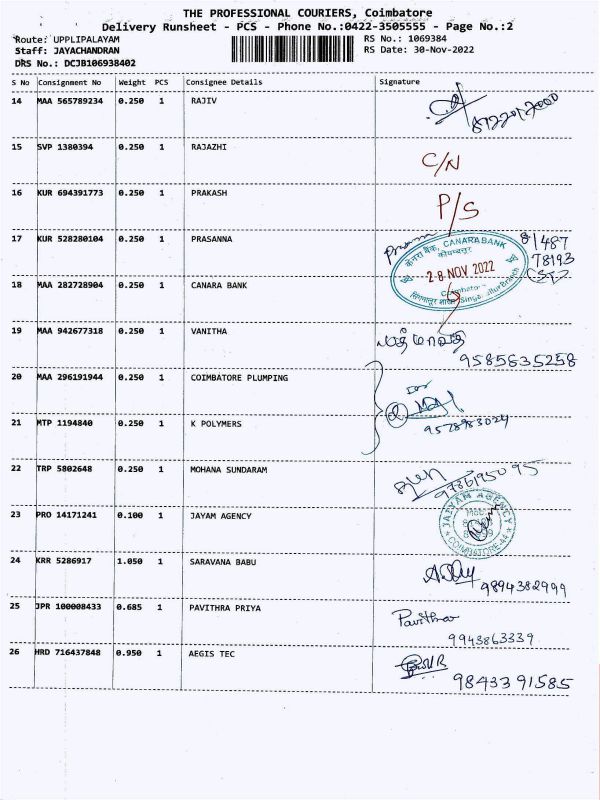 THE PROFESSIONAL COURIERS, Coimbatore
Delivery Runsheet - PCS - Phone No.:0422-3505555 - Page No.:2
Route: UPPLIPALAYAM RS No.: 1069384
Staff: JAYACHANDRAN RS Date: 30-Nov-2022
DRS No.: DCJB106938402
S No Consignment No Weight PCS Consignee Details Signature
14 MAA 565789234 0.250 1 RAJIV
15 SVP 1380394 0.250 1 RAJAZHI C/N
16 KUR 694391773 0.250 1 PRAKASH P/S
17 KUR 528280104 0.250 1 PRASANNA 81487
78193
केनरा बैंक, CANARA BANK
कोयम्बत्तूर
28 NOV 2022
18 MAA 282728904 0.250 1 CANARA BANK
19 MAA 942677318 0.250 1 VANITHA
9585635258
20 MAA 296191944 0.250 1 COIMBATORE PLUMPING
21 MTP 1194840 0.250 1 K POLYMERS 9578983024
22 TRP 5802648 0.250 1 MOHANA SUNDARAM
23 PRO 14171241 0.100 1 JAYAM AGENCY JAIYAM AGENCY
COIMBATORE-44
24 KRR 5286917 1.050 1 SARAVANA BABU
9894382999
25 JPR 100008433 0.685 1 PAVITHRA PRIYA Pavithra
9943863339
26 HRD 716437848 0.950 1 AEGIS TEC
9843391585